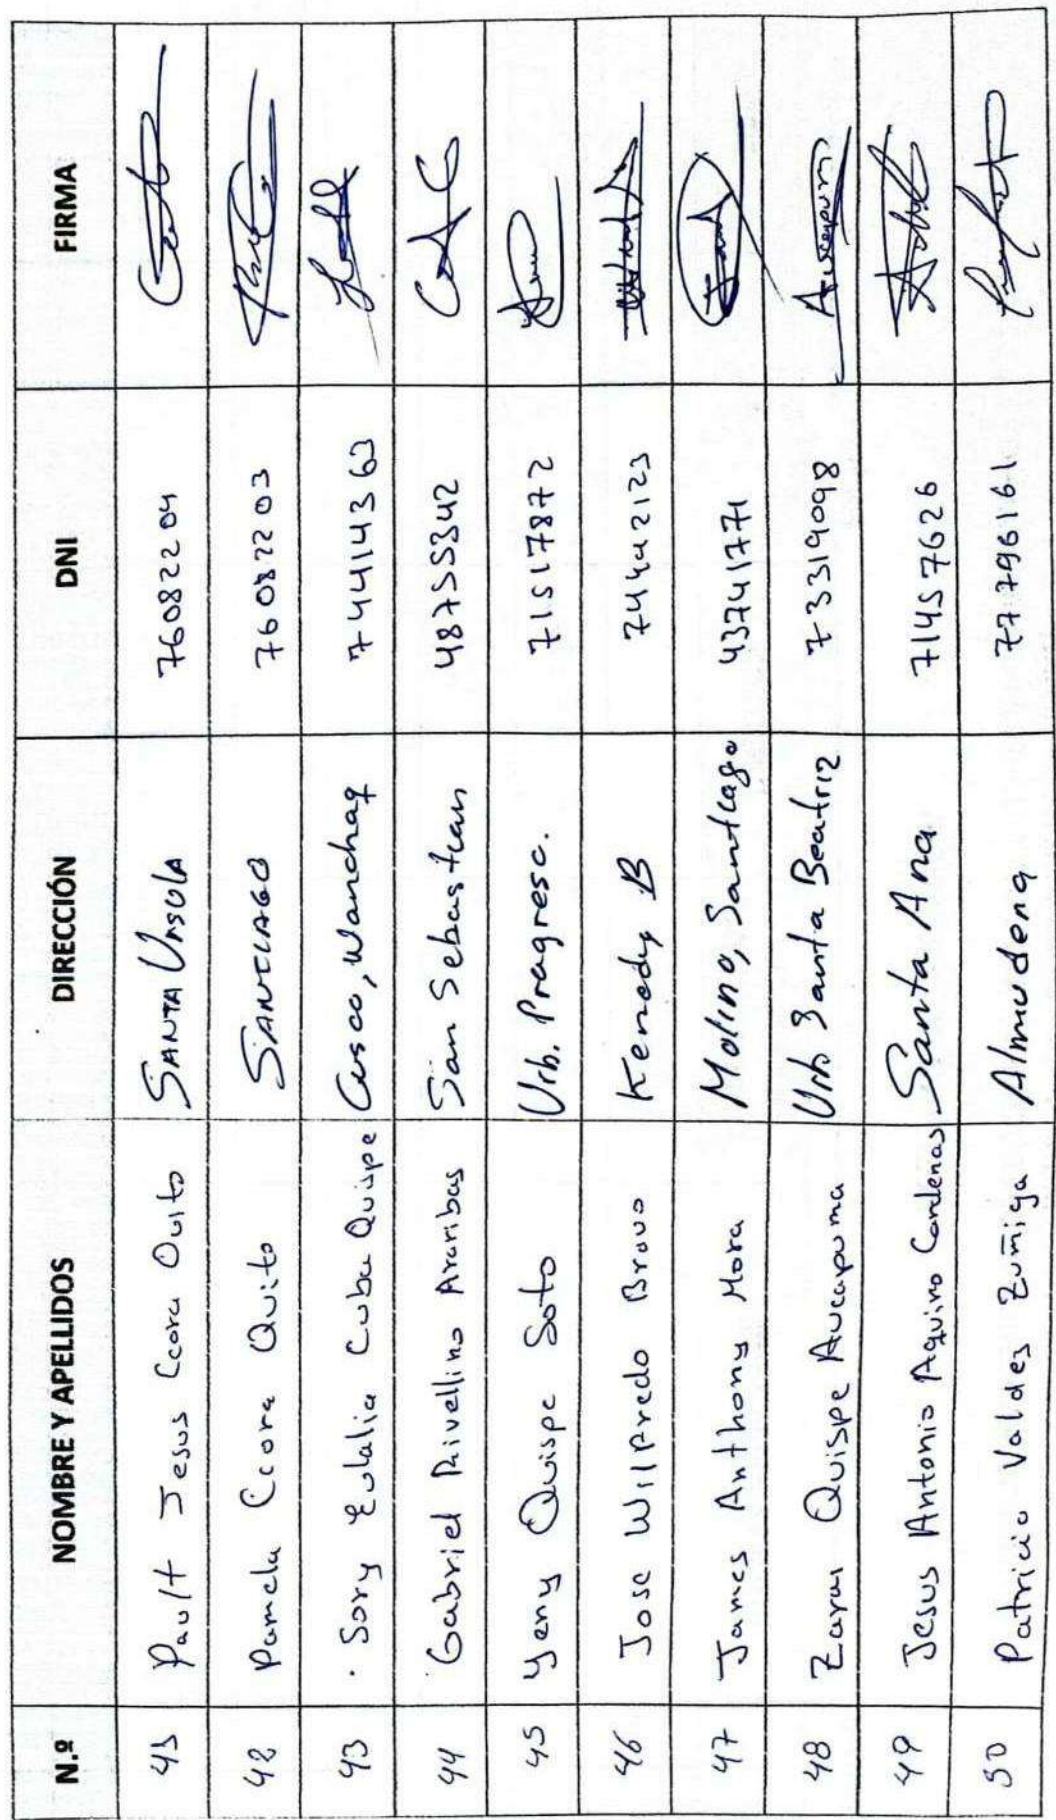 N.º NOMBRE Y APELLIDOS DIRECCIÓN DNI FIRMA
41 Pault Jesus Ccora Quito SANTA URSULA 76082204
42 Pamela Ccora Quito SANTIAGO 76082203
43 Sory Eulalia Cuba Quispe Cusco, Wanchaq 74414363
44 Gabriel Rivellino Aranibas San Sebastian 48755342
45 Yeny Quispe Soto Urb. Progreso. 71517872
46 Jose Wilfredo Bravo Kenedy B 74442123
47 James Anthony Mora Molino, Santiago 43741771
48 Zaran Quispe Aucapuma Urb Santa Beatriz 73319098
49 Jesus Antonio Aquino Cardenas Santa Ana 71457626
50 Patricio Valdes Zuñiga Almudena 77796161